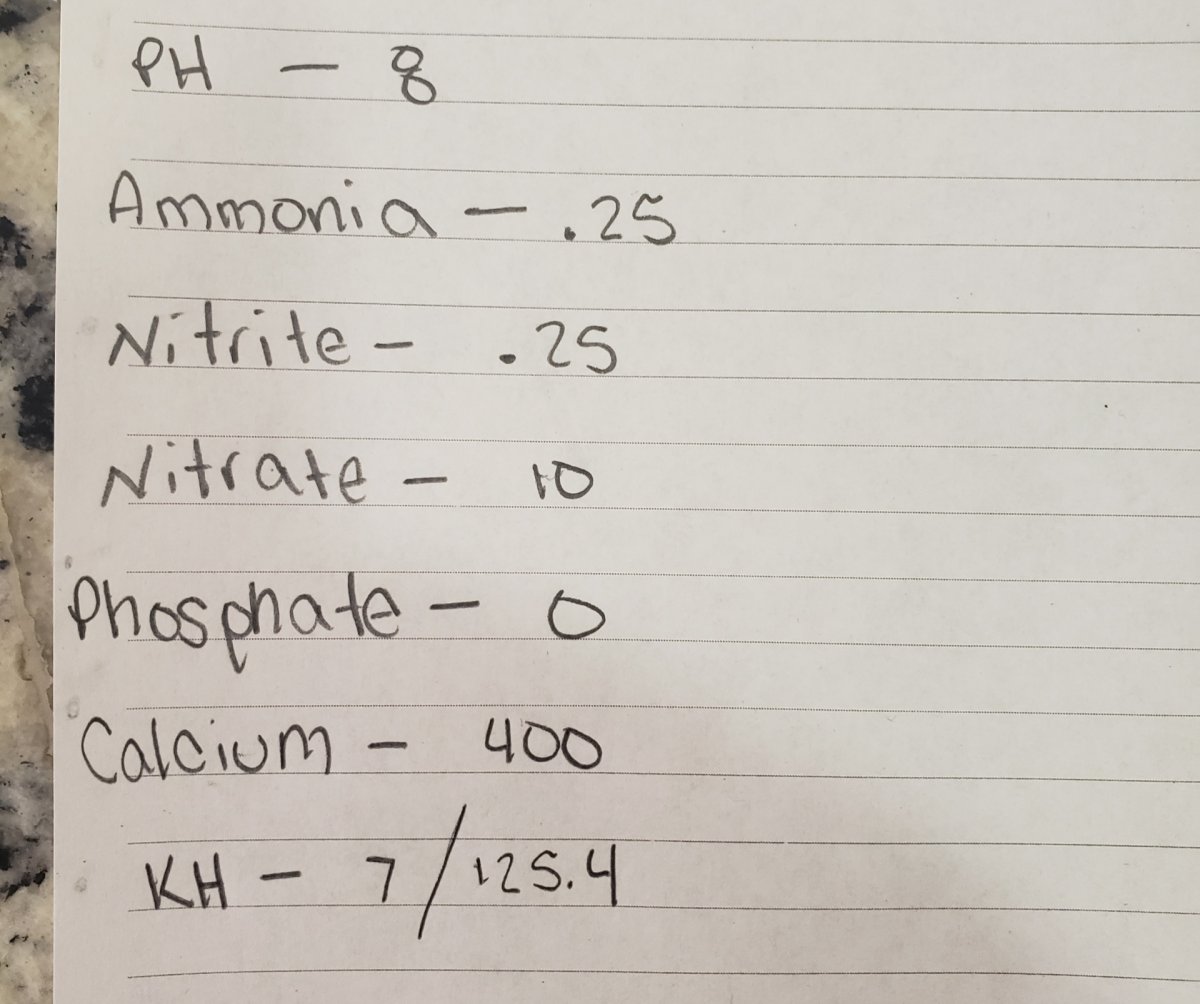 PH - 8
Ammonia - .25
Nitrite - .25
Nitrate - 10
Phosphate - 0
Calcium - 400
KH - 7/125.4